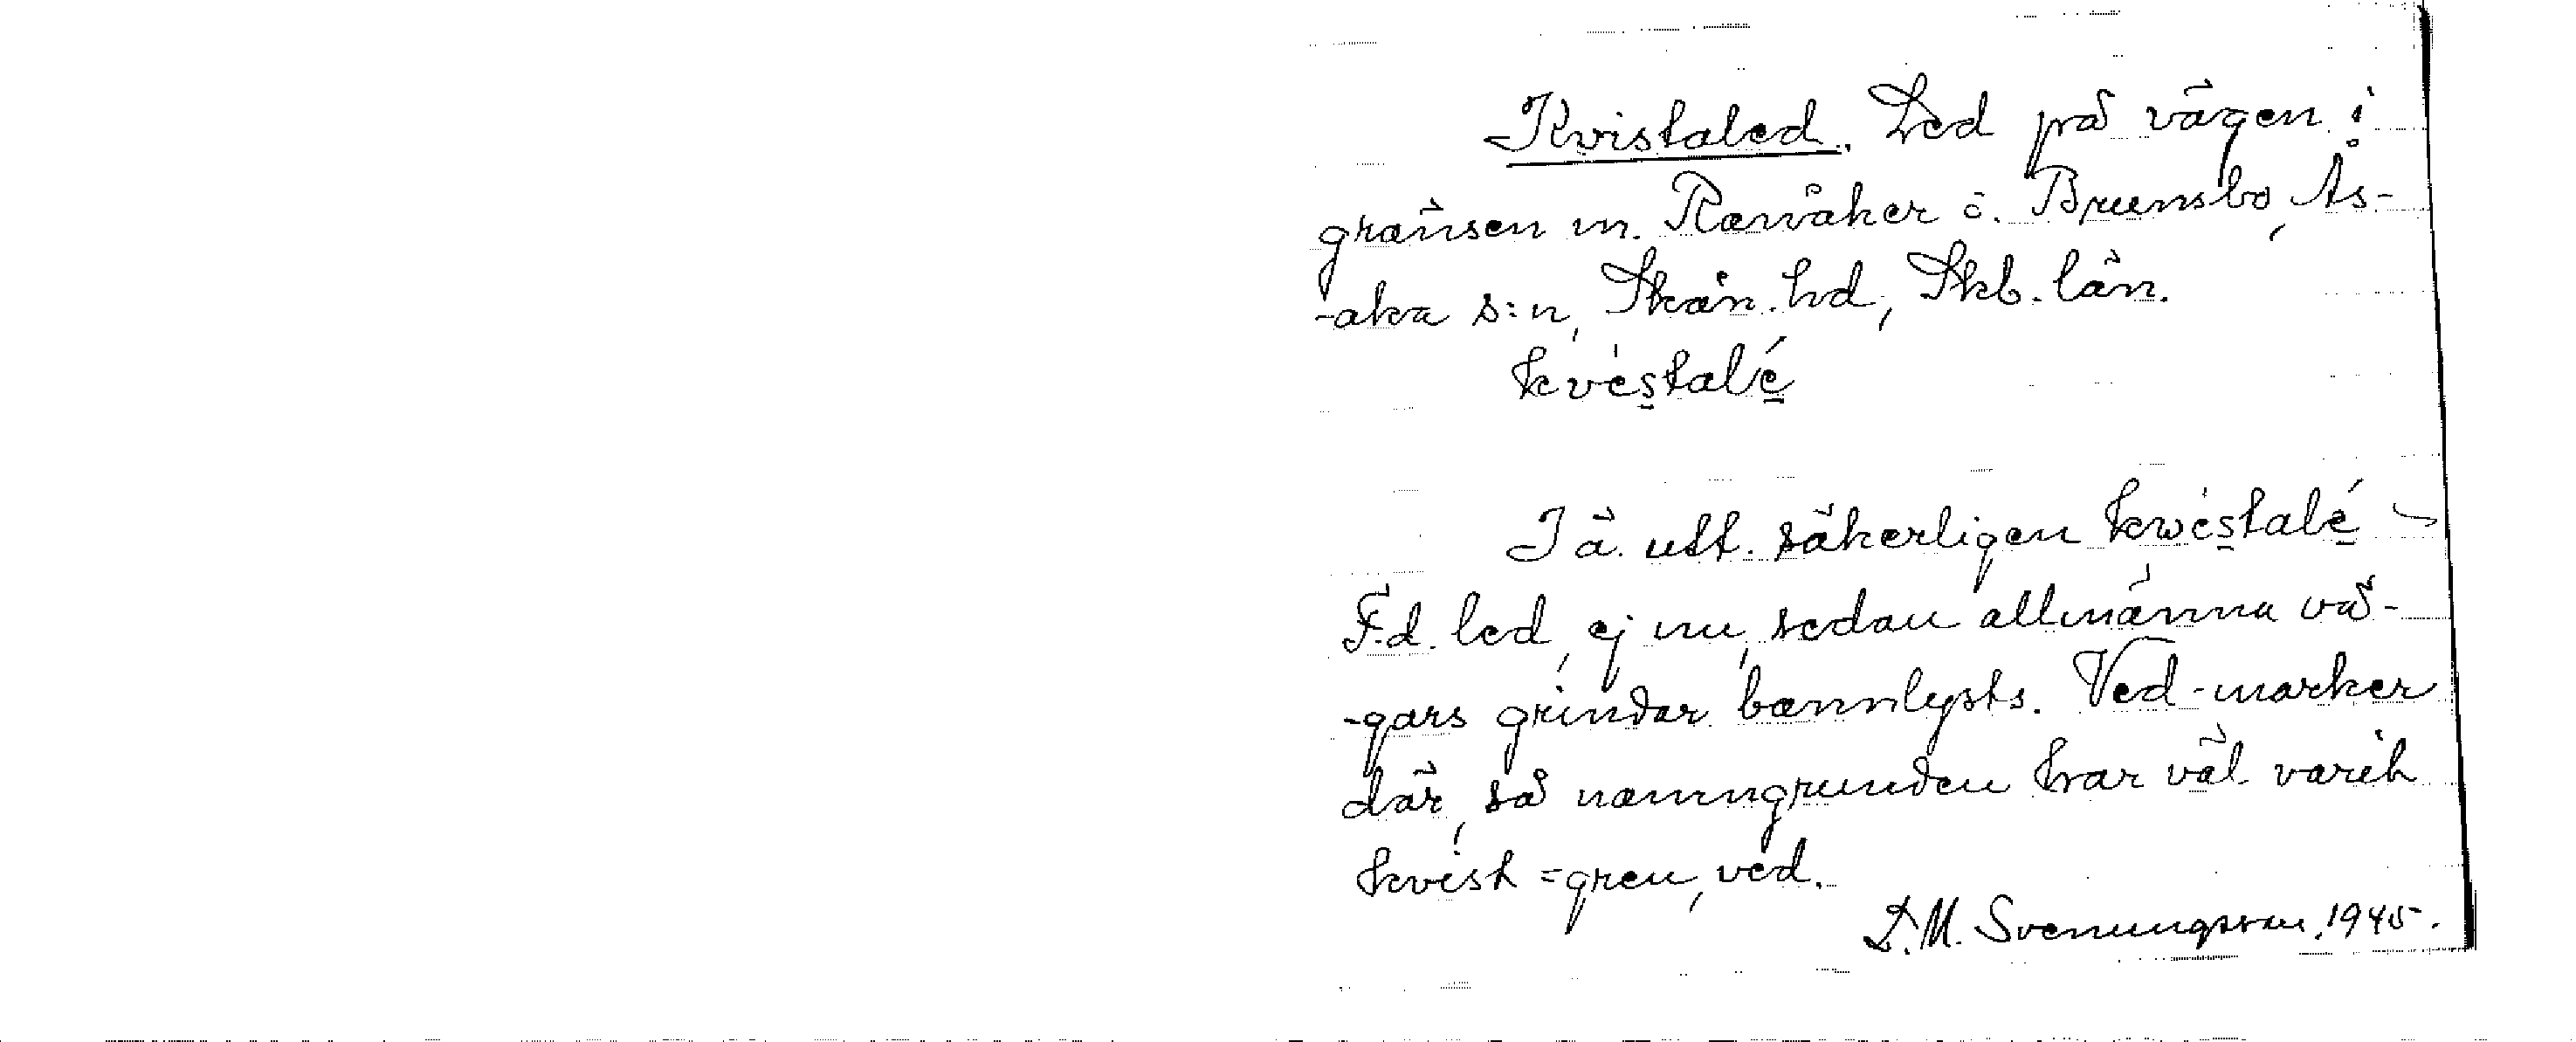 Kvistaled. Led på vägen i
gränsen m. Ranåker o. Brunsbo, Ås-
-aka s:n, Skån. hd, Skb. län.
kvèstalé
I ä. utt. säkerligen kwèstalé
F.d. led, ej nu, sedan allmänna vä-
-gars grindar bannlysts. Ved-marker
där, så namngrunden har väl varit
kvist = gren, ved.
D.M. Svenungsson, 1945.